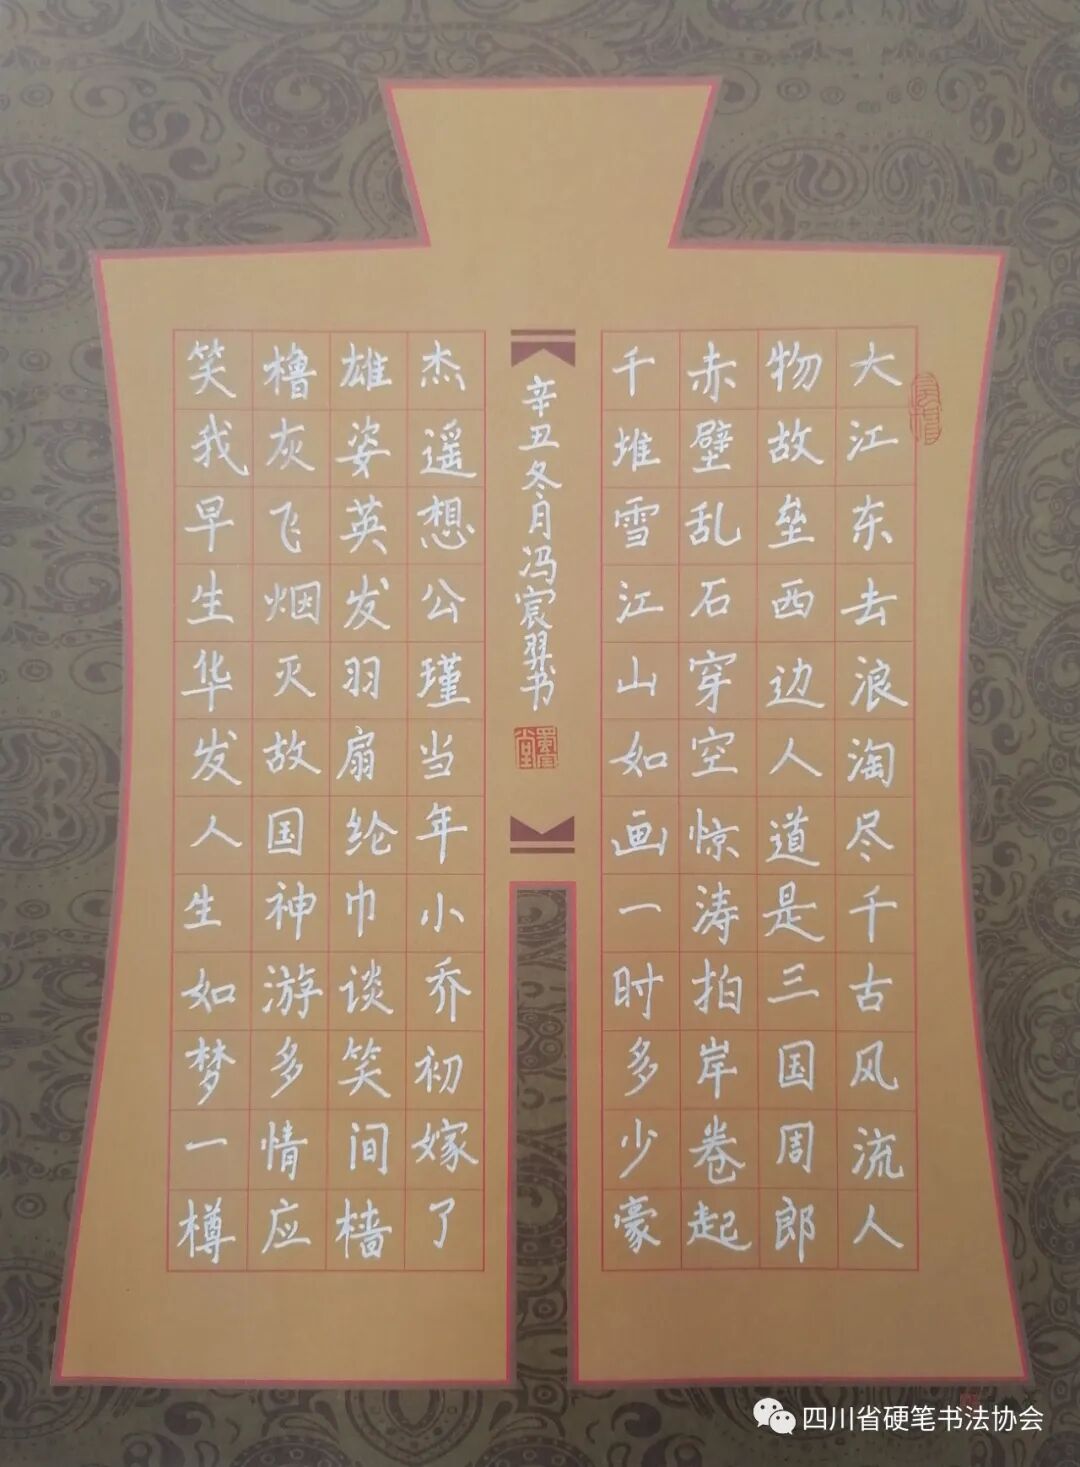 大江东去浪淘尽千古风流人
物故垒西边人道是三国周郎
赤壁乱石穿空惊涛拍岸卷起
千堆雪江山如画一时多少豪
杰遥想公瑾当年小乔初嫁了
雄姿英发羽扇纶巾谈笑间樯
橹灰飞烟灭故国神游多情应
笑我早生华发人生如梦一樽
辛丑冬月冯宸羿书
四川省硬笔书法协会